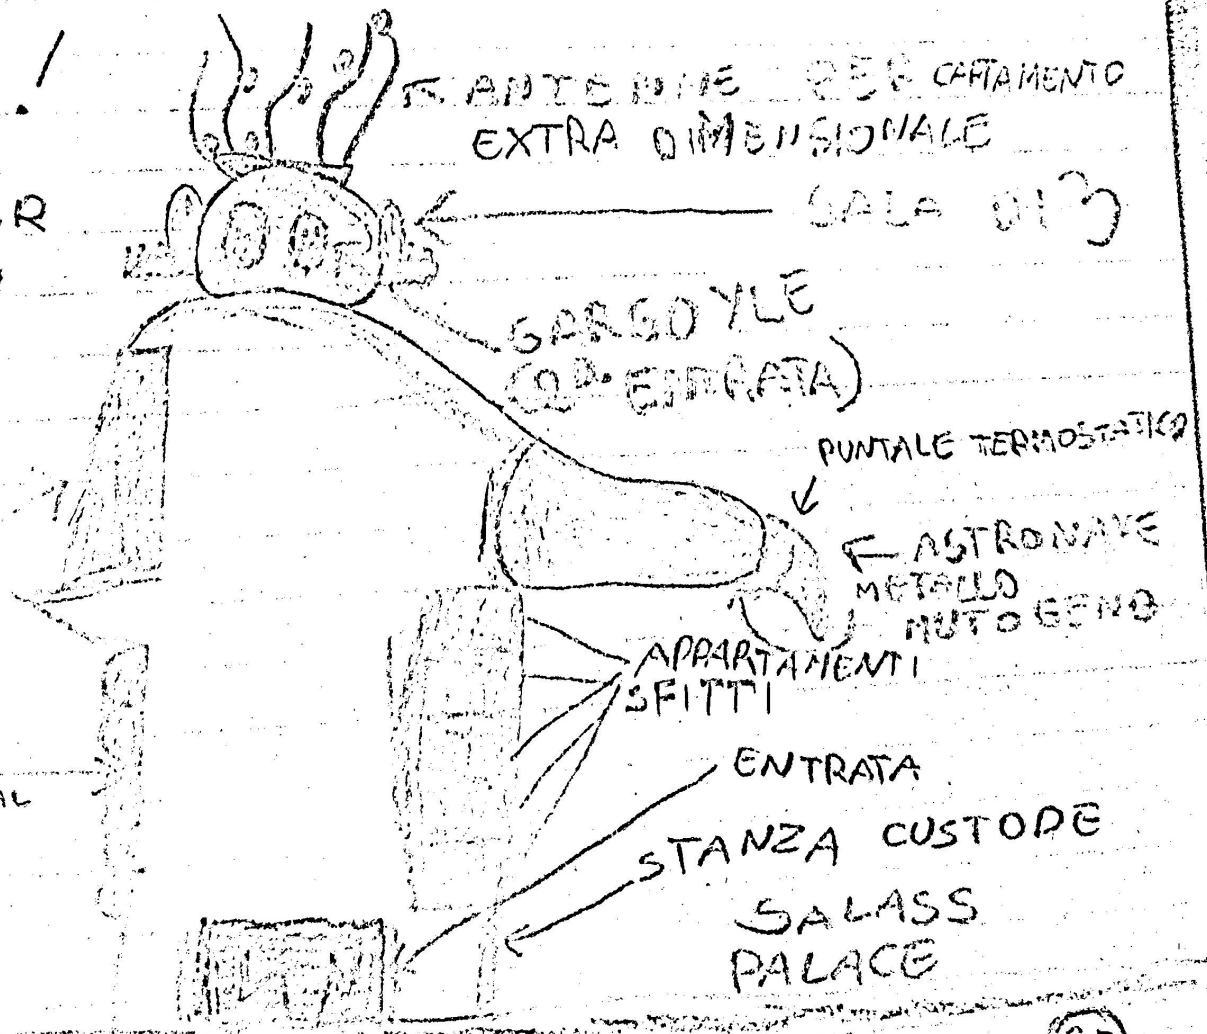 ANTENNE PER CAPTAMENTO
EXTRA DIMENSIONALE
SALA DI 3
R
GARGOYLE
(2ª ENTRATA)
PUNTALE TERMOSTATICO
ASTRONAVE
METALLO
MUTOGENO
APPARTAMENTI
SFITTI
ENTRATA
AL
STANZA CUSTODE
SALASS
PALACE